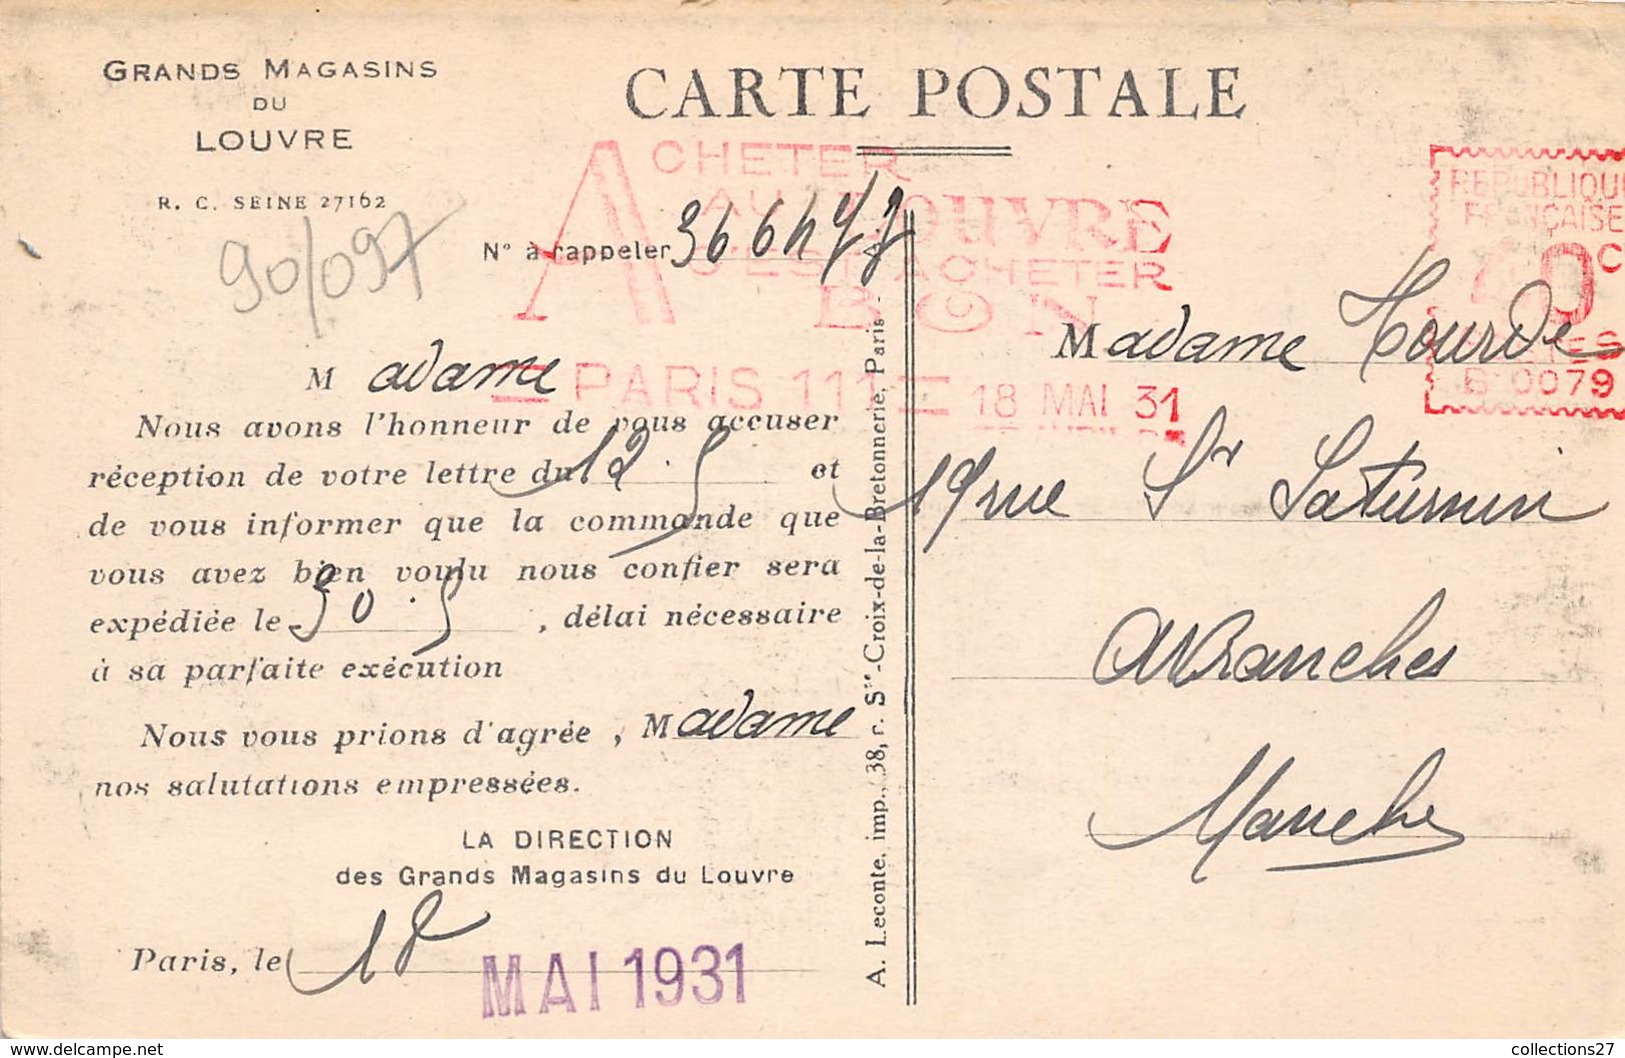 GRANDS MAGASINS
DU
LOUVRE
R. C. SEINE 27162
90/097
CARTE POSTALE
ACHETER
AU LOUVRE
C'EST ACHETER
BON
PARIS 111
18 MAI 31
RÉPUBLIQUE
FRANÇAISE
40 C
POSTES
B 0079
N° à rappeler 366477
M adame
Nous avons l'honneur de vous accuser
réception de votre lettre du 12.5 et
de vous informer que la commande que
vous avez bien voulu nous confier sera
expédiée le 30.5, délai nécessaire
à sa parfaite exécution
Nous vous prions d'agrée , Madame
nos salutations empressées.
LA DIRECTION
des Grands Magasins du Louvre
Paris, le 18 MAI 1931
A. Leconte, imp., 38, r. Ste-Croix-de-la-Bretonnerie, Paris
Madame Hourde
19 rue St Saturnin
Avranches
Manche
collections27